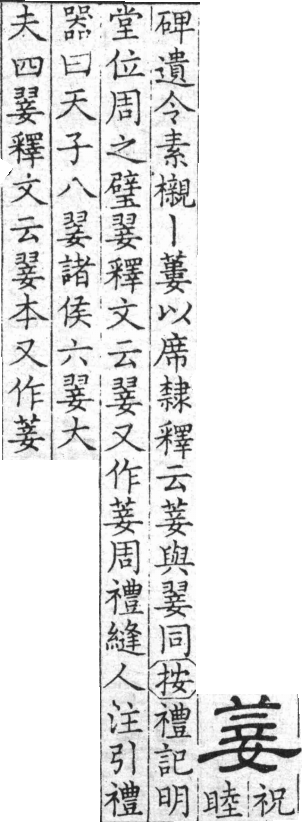 菨
祝睦
碑遺令素櫬丨蔞以席隸釋云菨與翣同按禮記明
堂位周之璧翣釋文云翣又作菨周禮縫人注引禮
器曰天子八翣諸侯六翣大
夫四翣釋文云翣本又作菨